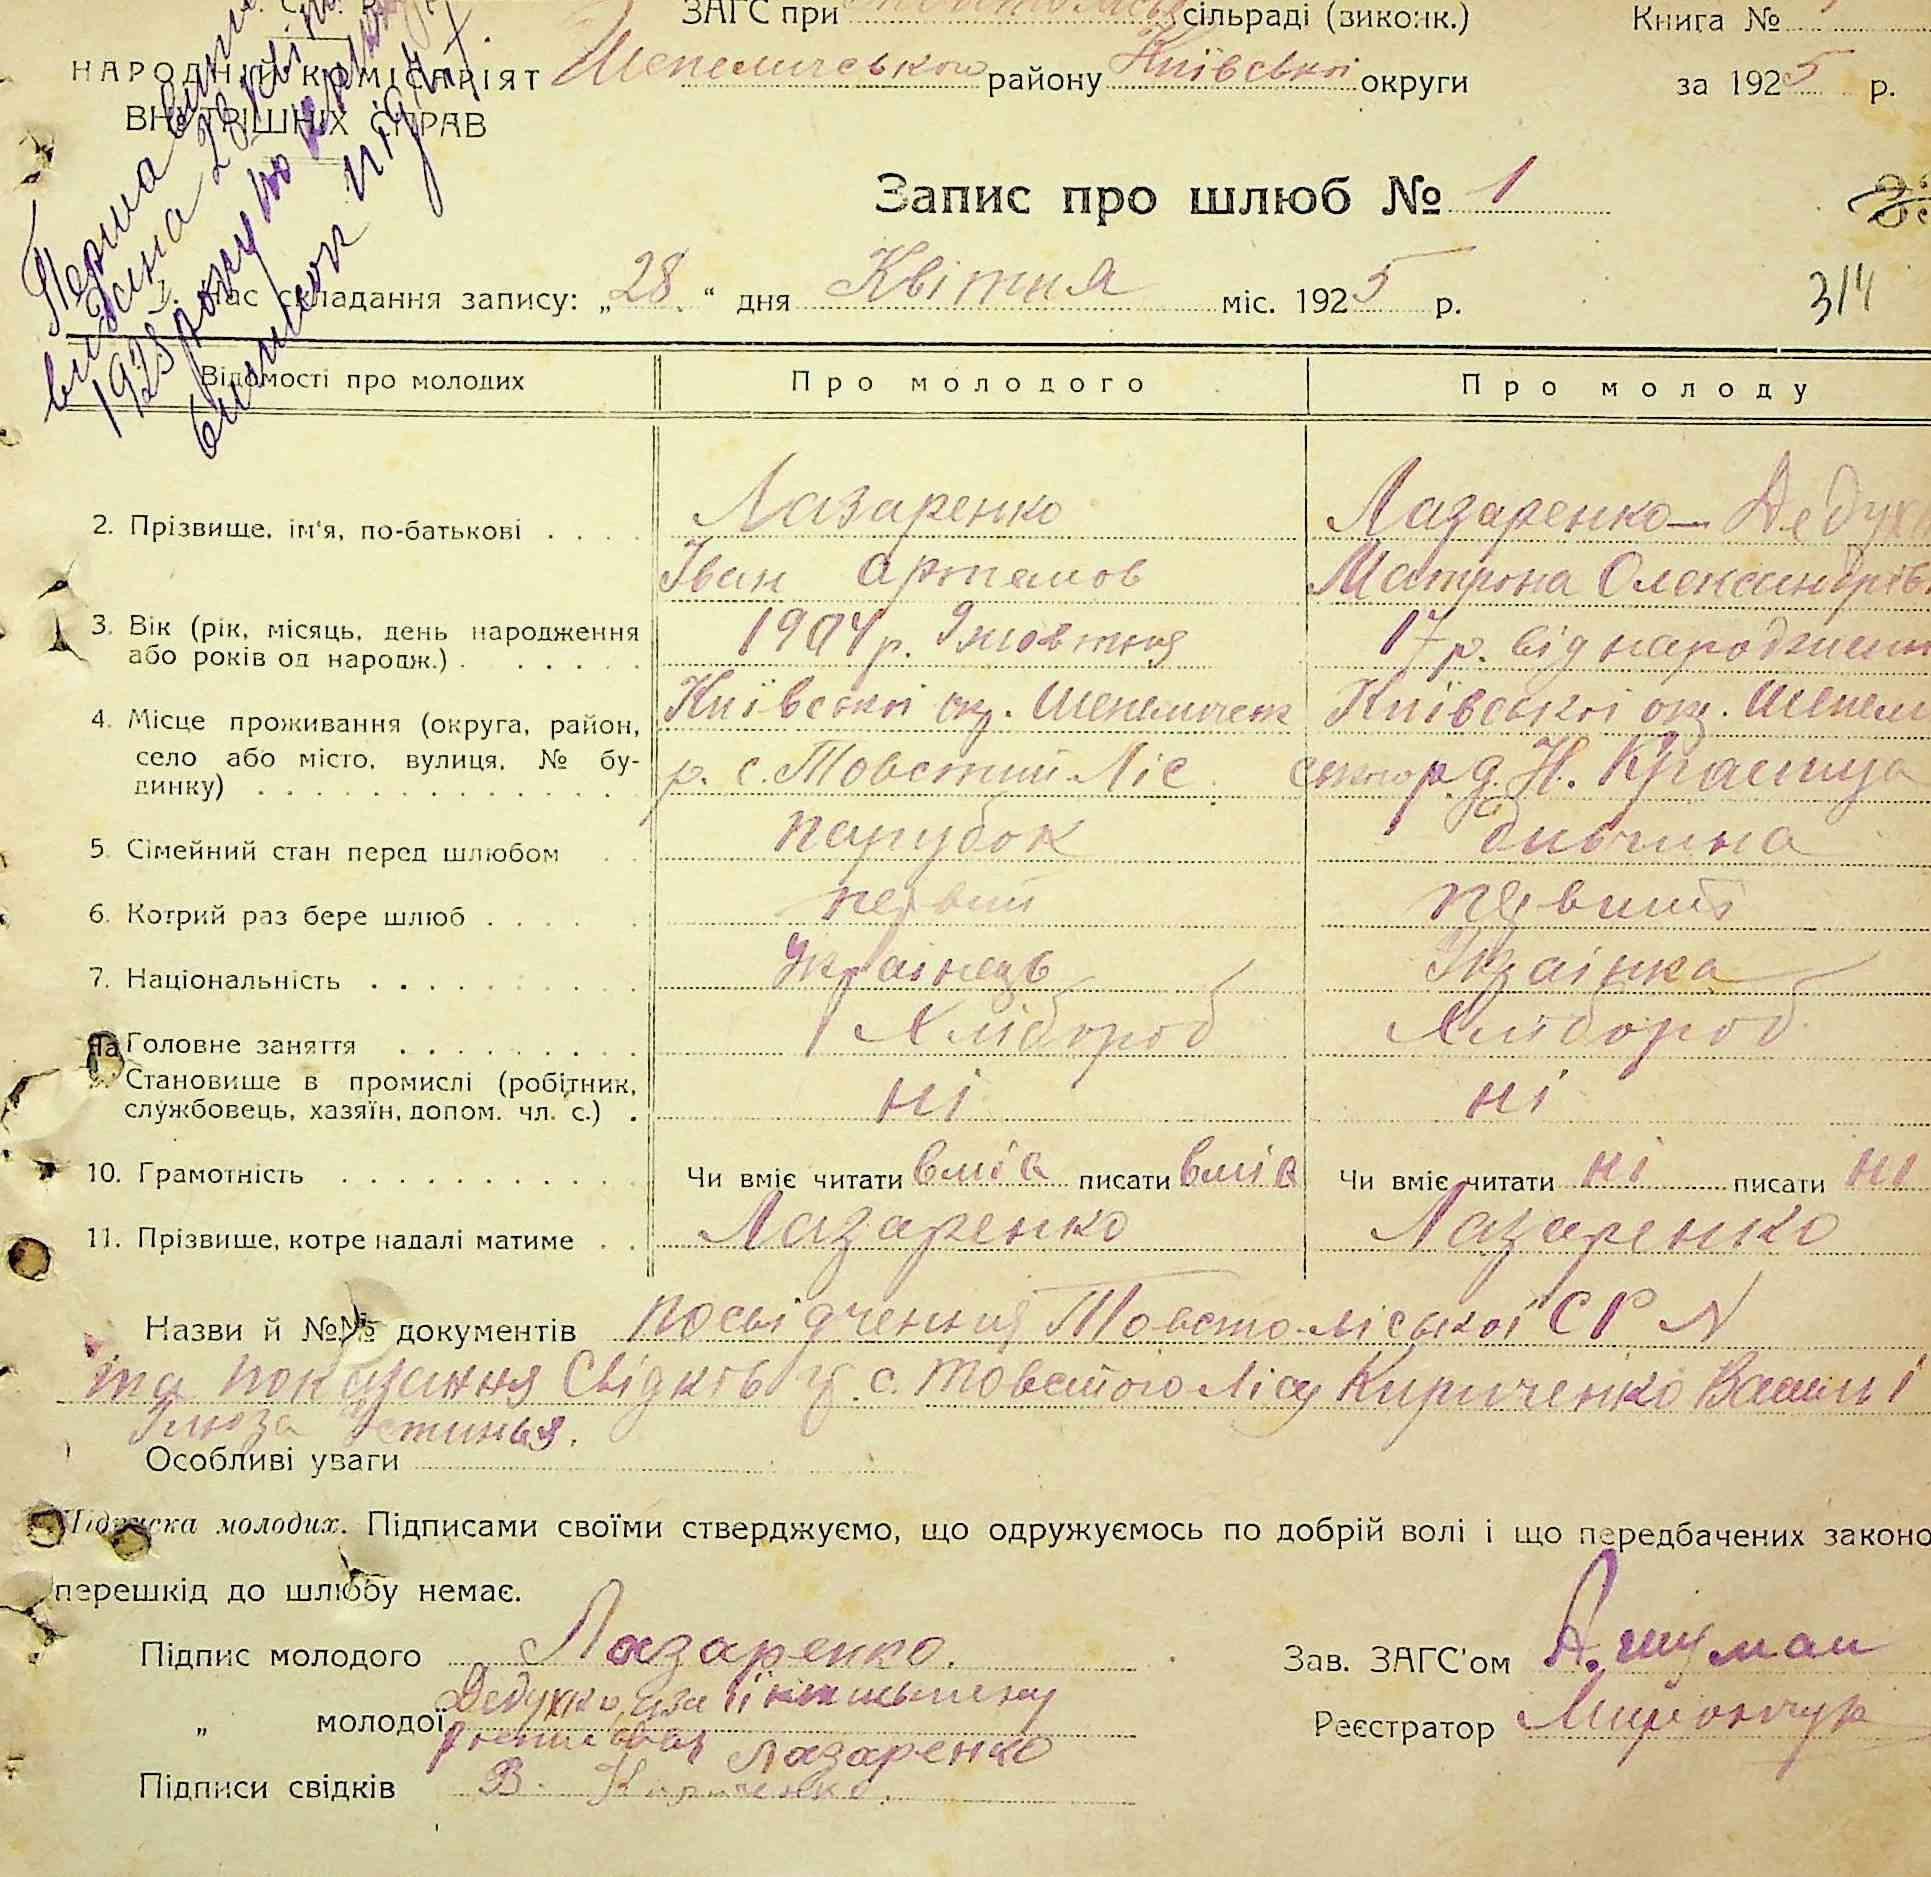 ЗАГС при сільраді (виконк.) Книга №
НАРОДНИЙ КОМІСАРІЯТ Шепелицького району Київської округи за 1925 р.
ВНУТРІШНИХ СПРАВ
Запис про шлюб № 1
Перша випис
видана 28 квітн
1925 року
виписом
Час складання запису: „28“ дня Квітня міс. 1925 р.
314
Відомості про молодих Про молодого Про молоду
2. Прізвище, ім'я, по-батькові . . . . Лазаренко Лазаренко — Дедух
Іван Артемов Матрона Олександрівн
3. Вік (рік, місяць, день народження 1904 р. 9 жовтня 17 р. від народжен
або років од народж.) . . . . . .
4. Місце проживання (округа, район, Київської окр. Шепелицьк Київської окр. Шепел
село або місто, вулиця, № бу- р. с. Товстий Ліс р. д. Н. Красниця
динку)
5. Сімейний стан перед шлюбом . . парубок дивчина
6. Котрий раз бере шлюб . . . . первий первий
7. Національність . . . . . . . . . Українець Українка
Головне заняття . . . . . . . . . Хлібороб Хлібороб
Становище в промислі (робітник, ні ні
службовець, хазяїн, допом. чл. с.) .
10. Грамотність . . . . . . . . . . . Чи вміє читати вміє писати вміє Чи вміє читати ні писати ні
11. Прізвище, котре надалі матиме . . Лазаренко Лазаренко
Назви й №№ документів посвідчення Товсто-ліської СР N
та показання Свідків с. Товстого Лісу Кириченко Василь і
Устинья.
Особливі уваги
Підписка молодих. Підписами своїми стверджуємо, що одружуємось по добрій волі і що передбачених законо
перешкід до шлюбу немає.
Підпис молодого Лазаренко. Зав. ЗАГС'ом А. Шуман
„ молодої Дедухко, за її неписьмену
росписався Лазаренко Реєстратор Мирончук
Підписи свідків В. Кириченко.